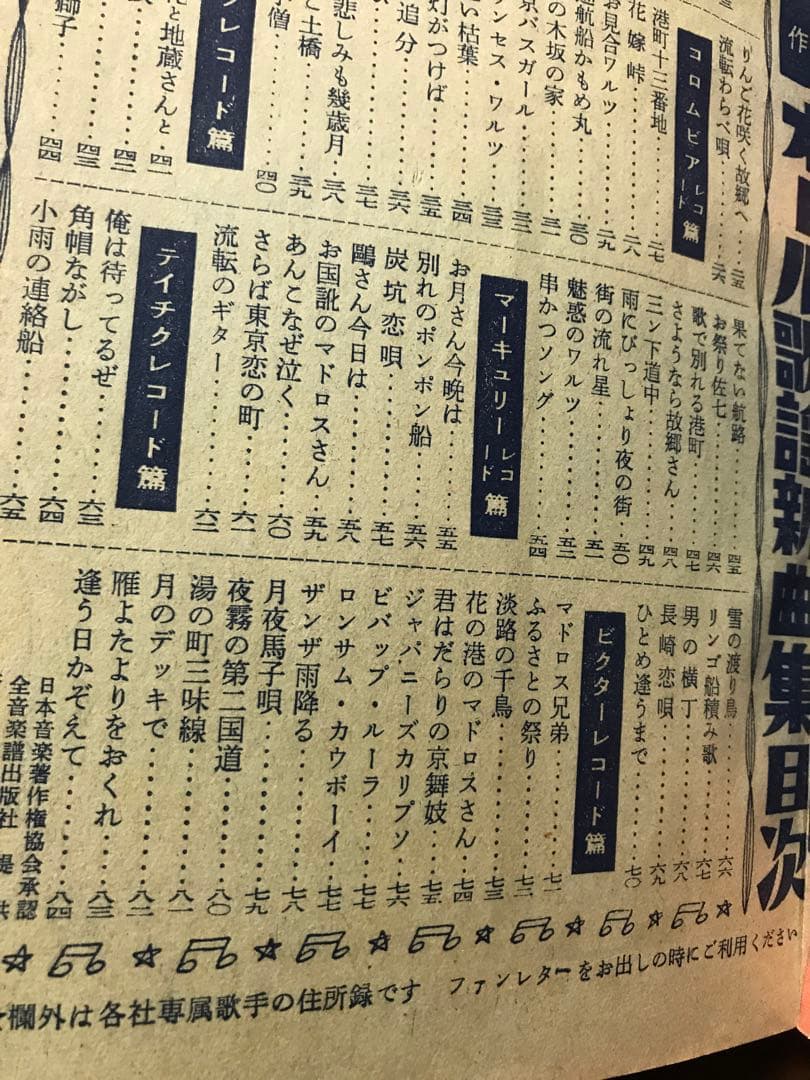 作
歌謡新曲集目次
りんご花咲く故郷へ………二五
流転わらべ唄………二六
コロムビアレコード篇
港町十三番地………二七
花嫁峠………二八
お見合ワルツ………二九
航船かもめ丸………三〇
の木坂の家………三一
京バスガール………三二
ンセス・ワルツ………三三
い枯葉………三四
灯がつけば………三五
追分………三六
………三七
悲しみも幾歳月………三八
と土橋………三九
僧………四〇
レコード篇
と地蔵さんと………四一
………四二
………四三
獅子………四四
果てない航路………四五
お祭り佐七………四六
歌で別れる港町………四七
さようなら故郷さん………四八
三ン下道中………四九
雨にびっしょり夜の街………五〇
街の流れ星………五一
魅惑のワルツ………五二
串かつソング………五四
マーキュリーレコード篇
お月さん今晩は………五五
別れのポンポン船………五六
炭坑恋唄………五七
鷗さん今日は………五八
お国訛のマドロスさん………五九
あんこなぜ泣く………六〇
さらば東京恋の町………六一
流転のギター………六二
テイチクレコード篇
俺は待ってるぜ………六三
角帽ながし………六四
小雨の連絡船………六五
雪の渡り鳥………六六
リンゴ船積み歌………六七
男の横丁………六八
長崎恋唄………六九
ひとめ逢うまで………七〇
ビクターレコード篇
マドロス兄弟………七一
ふるさとの祭り………七二
淡路の千鳥………七三
花の港のマドロスさん………七四
君はだらりの京舞妓………七五
ジャパニーズカリプソ………七六
ビバップ・ルーラ………七七
ロンサム・カウボーイ………七七
ザンザ雨降る………七八
月夜馬子唄………七九
夜霧の第二国道………八〇
湯の町三味線………八一
月のデッキで………八二
雁よたよりをおくれ………八三
逢う日かぞえて………八四
日本音楽著作権協会承認
全音楽譜出版社 提供
欄外は各社専属歌手の住所録です ファンレターをお出しの時にご利用ください